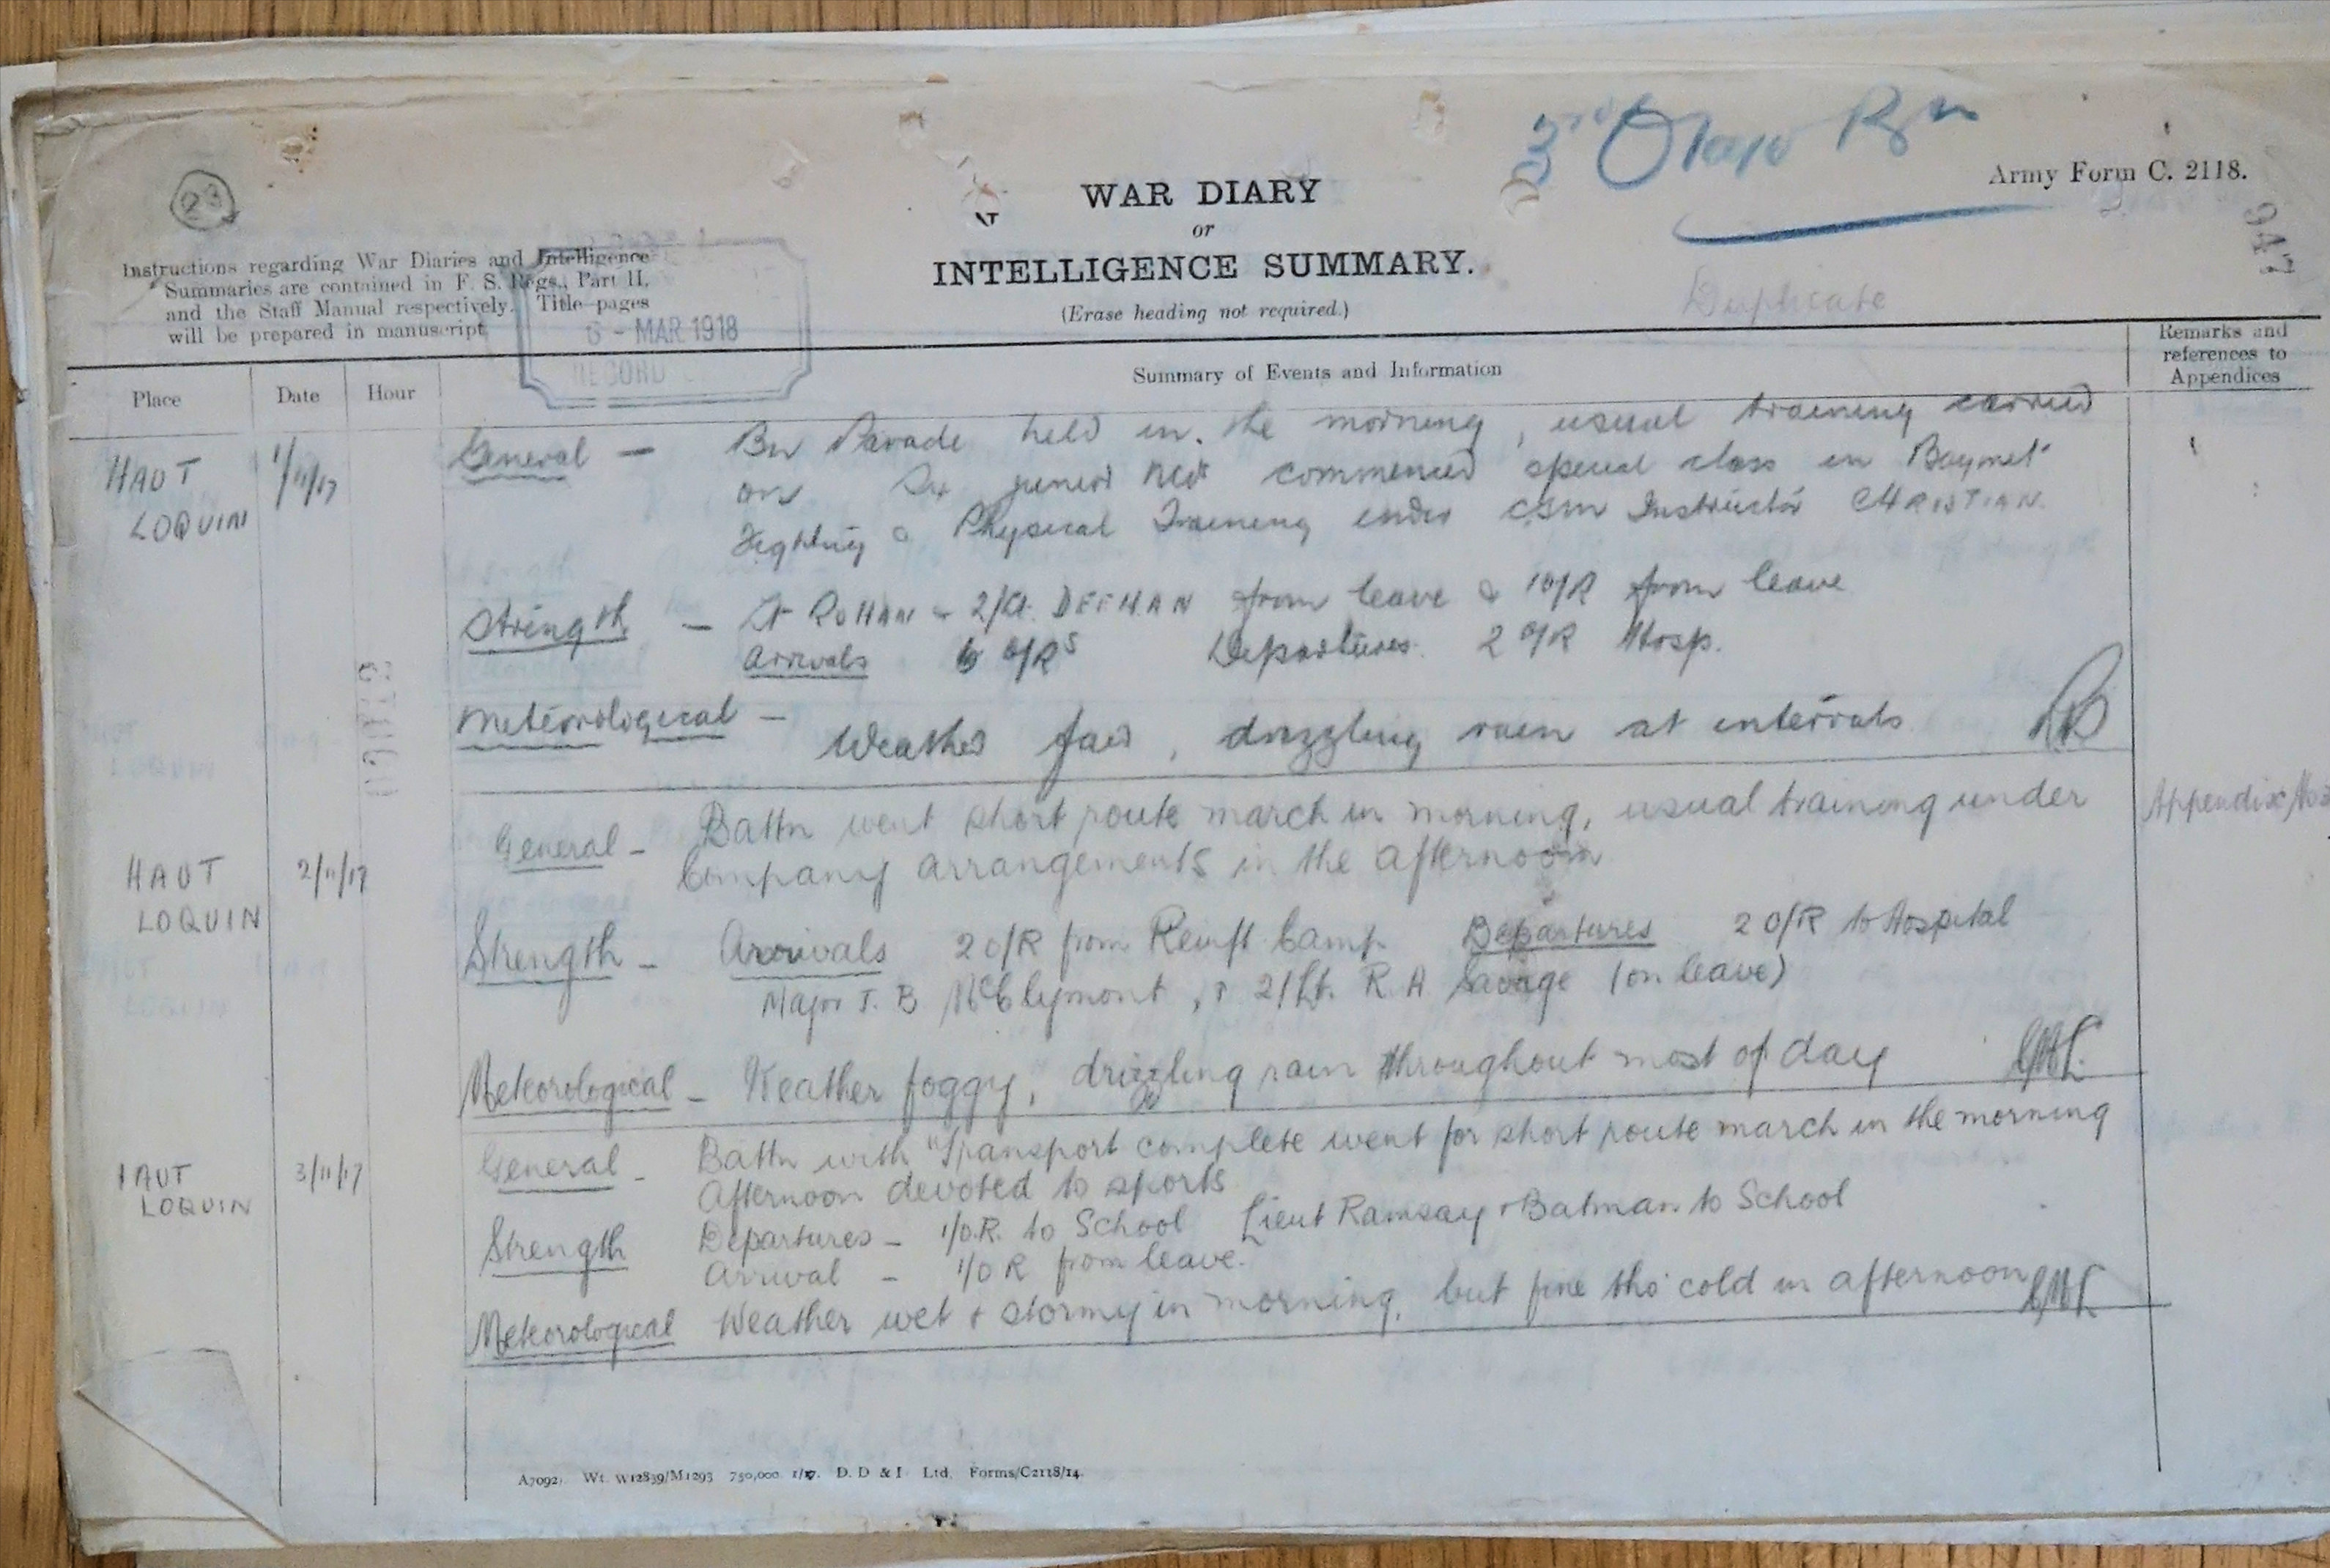 3rd Otago Rgn
23
WAR DIARY
or
INTELLIGENCE SUMMARY.
(Erase heading not required.)
Army Form C. 2118.
947
Duplicate
Instructions regarding War Diaries and Intelligence
Summaries are contained in F. S. Regs., Part II.
and the Staff Manual respectively. Title-pages
will be prepared in manuscript
6 - MAR 1918
RECORD
Place Date Hour Summary of Events and Information Remarks and references to Appendices
HAUT LOQUIN 1/11/17 General — Bn Parade held in the morning, usual training carried
on Six junior NCOs commenced special class in Bayonet
Fighting & Physical Training under CSM Instructor CHRISTIAN.
Strength — Lt ROHAN & 2/Lt. DEEHAN from leave & 1 O/R from leave
Arrivals 6 O/Rs Departures. 2 O/R Hosp.
Meteorological — Weather fair, drizzling rain at intervals
HAUT LOQUIN 2/11/17 General - Battn went short route march in morning, usual training under
Company arrangements in the afternoon
Appendix No
Strength - Arrivals 2 O/R from Reinft. Camp Departures 2 O/R to Hospital
Major T. B McClymont, & 2/Lt. R A Savage (on leave)
Meteorological - Weather foggy, drizzling rain throughout most of day
HAUT LOQUIN 3/11/17 General - Battn with Transport complete went for short route march in the morning
Afternoon devoted to sports
Strength Departures - 1/O.R. to School Lieut Ramsay & Batman to School
Arrival - 1/O R from leave.
Meteorological Weather wet & stormy in morning, but fine tho' cold in afternoon
A7092. Wt. W12839/M1293 750,000. 1/17. D. D & L Ltd. Forms/C2118/14.